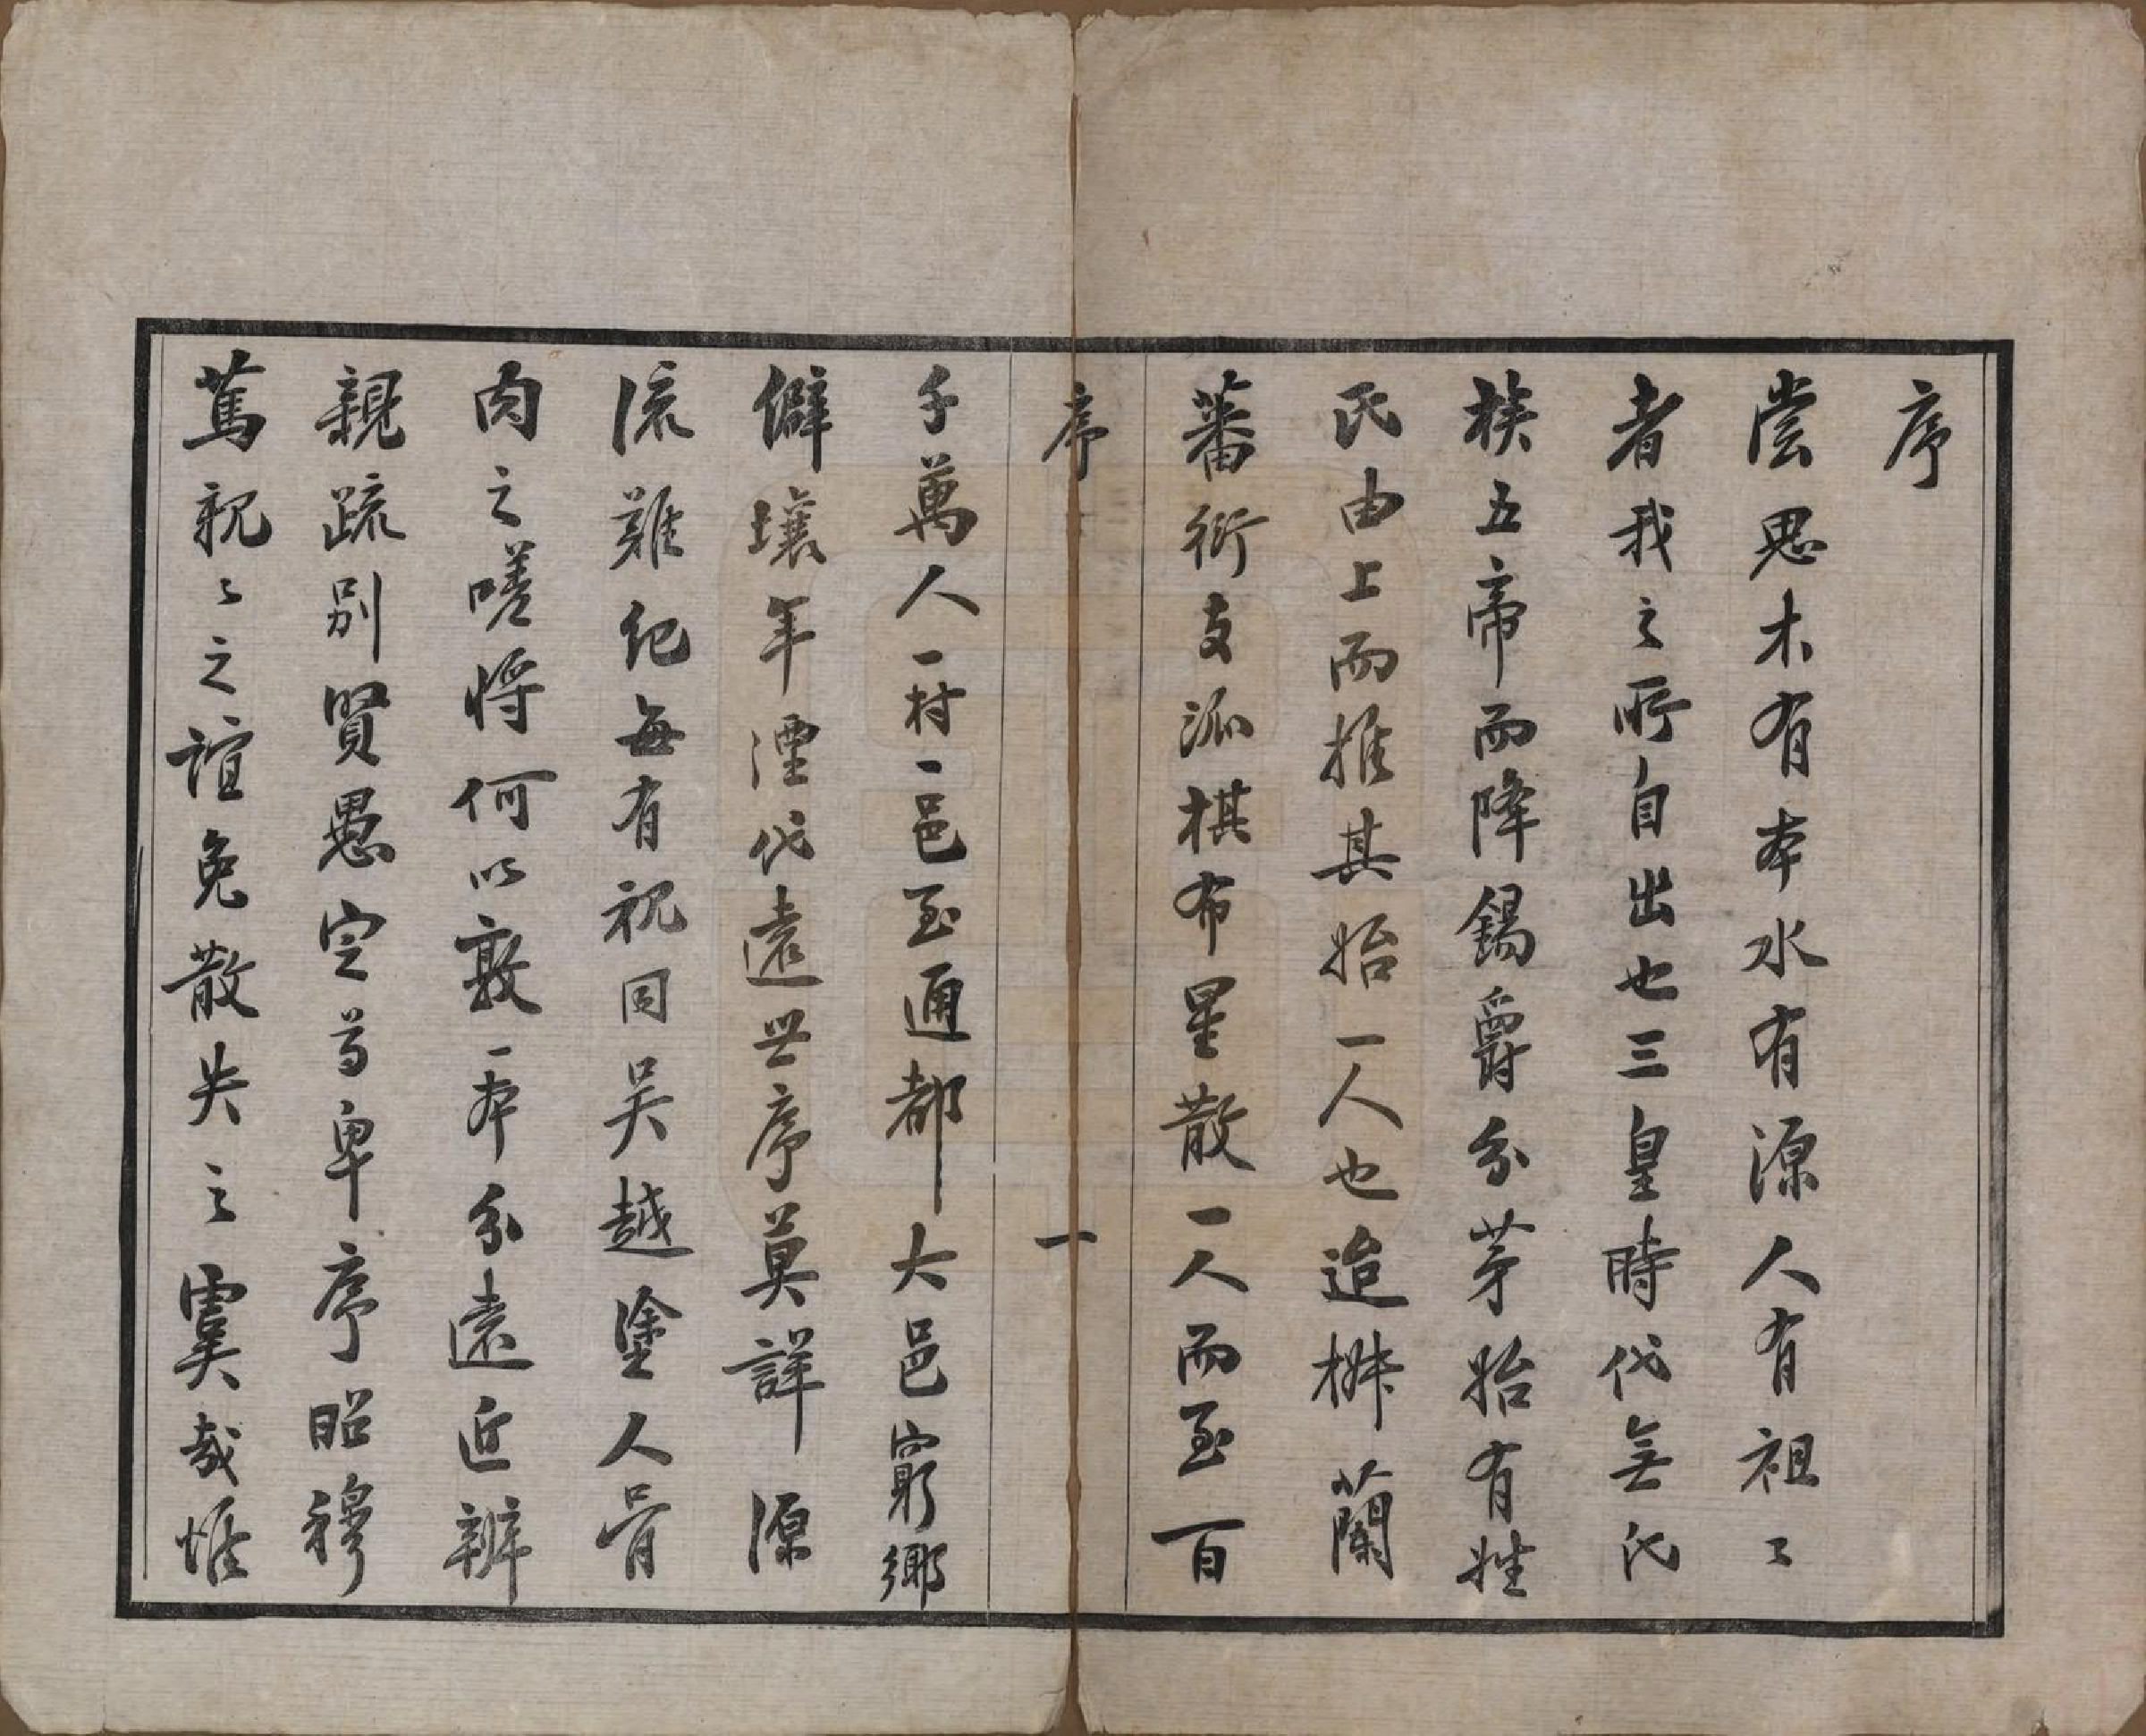 序
嘗思木有本水有源人有祖〻
者我之所自出也三皇時代無氏
族五帝而降錫爵分茅始有姓
氏由上而推其始一人也迨椒蘭
蕃衍支派棋布星散一人而至百
序 一
千萬人一村一邑至通都大邑窮鄉
僻壤年湮代遠世序莫詳源
流難紀每有視同吳越塗人骨
肉之嗟將何以敦一本分遠近辨
親疏別賢愚定尊卑序昭穆
篤親〻之誼免散失之虞哉惟